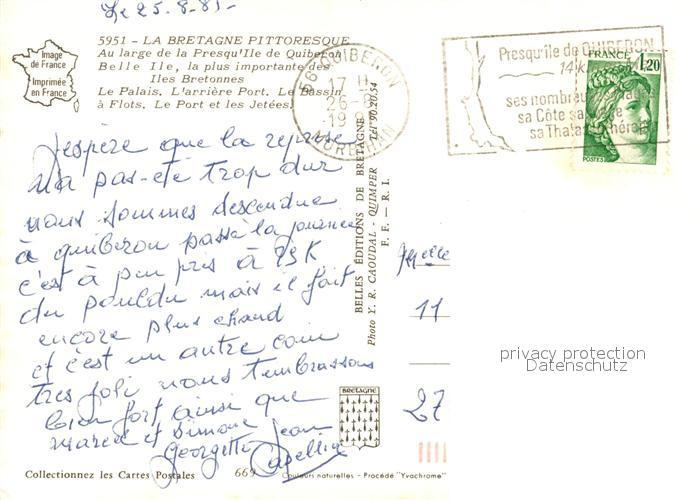 Le 25.8.81-
5951 - LA BRETAGNE PITTORESQUE
Au large de la Presqu'Ile de Quiberon
Belle Ile, la plus importante des
Iles Bretonnes
Le Palais. L'arrière Port. Le Bassin
à Flots. Le Port et les Jetées.
Image
de France
Imprimée
en France
56 QUIBERON
17 H
26-8
-19
MORBIHAN
Presqu'île de QUIBERON
14 k
ses nombreu
sa Côte sa
sa Thala thérap
FRANCE
1,20
POSTES
J'espère que la reprise
n'a pas-été trop dur
nous sommes descendue
à quiberon passé la journée
c'est à peu pris à 75K
du pouldu mais il fait
encore plus chaud
et c'est un autre coin
tres joli nous t'embrassons
bien fort ainsi que
marcel et Simone
Georgette Jean
BELLES ÉDITIONS DE BRETAGNE
Tél. 90.20.54
Photo Y. R. CAOUDAL - QUIMPER
F. F. - R. I.
11
27
BRETAGNE
privacy protection
Datenschutz
Collectionnez les Cartes Postales
669
Couleurs naturelles - Procédé "Yvachrome"